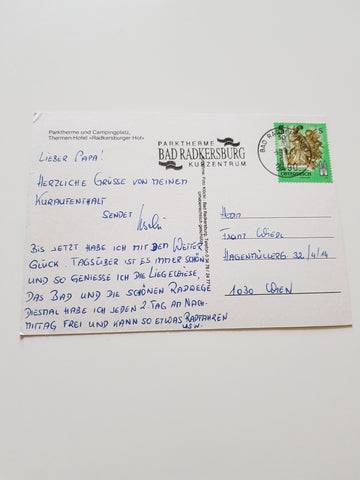 Parktherme und Campingplatz,
Thermen-Hotel »Radkersburger Hof«
PARKTHERME
BAD RADKERSBURG
KURZENTRUM
5
ÖSTERREICH
LIEBER PAPA!
HERZLICHE GRÜSSE VON MEINEM
KURAUFENTHALT
SENDET
BIS JETZT HABE ICH MIT DEM WETTER
GLÜCK. TAGSÜBER IST ES IMMER SCHÖN
UND SO GENIESSE ICH DIE LIEGEWIESE,
DAS BAD UND DIE SCHÖNEN RADWEGE
DIESMAL HABE ICH JEDEN 2. TAG AM NACH-
MITTAG FREI UND KANN SO ETWAS RADFAHREN
USW.
Herrn
FRANZ WIEDL
HAGENMÜLLERG 32/4/14
1030 WIEN